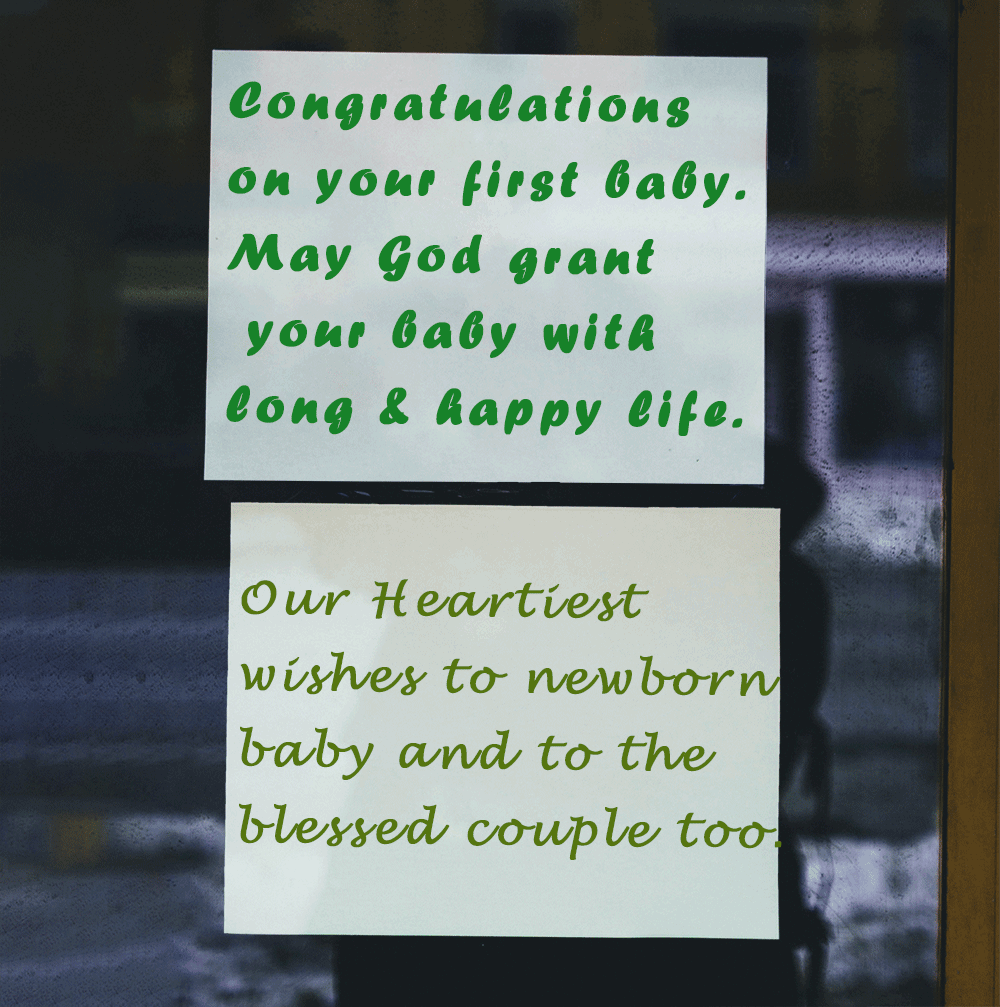 Congratulations
on your first baby.
May God grant
your baby with
long & happy life.
Our Heartiest
wishes to newborn
baby and to the
blessed couple too.